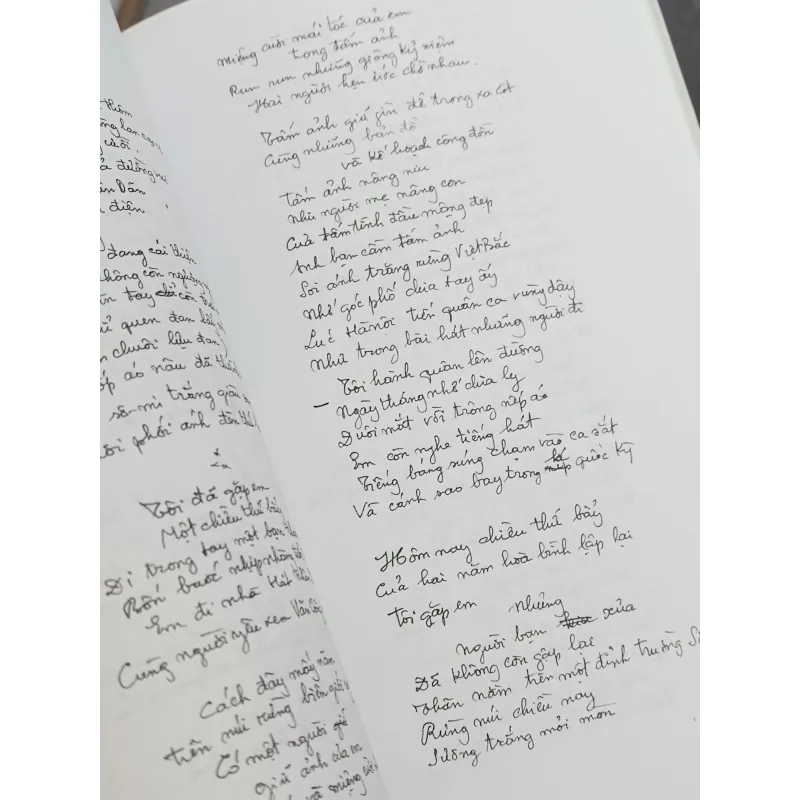 thêm
cười.
ả đường
dân Dân
điên
đang cải thiện
không còn
tay chỉ còn
quen đan
chuôi lựu đạn
áo nâu đã
sơ-mi trắng giữa
phối ánh đèn
x
x x
Tôi đã gặp em
Một chiều thứ bảy
Đi trong tay một bạn
Bốn bước nhịp nhàng
Em đi nhà Hát
Cùng người yêu xem Văn
Cách đây mấy năm
trên núi rừng biên giới
Có một người giữ
giữ ảnh của em
và
miếng cười mái tóc của em
trong tấm ảnh
Run run những giòng kỷ niệm
Hai người hẹn ước chờ nhau.
Tấm ảnh giữ gìn để trong xa cột
Cùng những bản đồ
và kế hoạch công đồn
Tấm ảnh nâng niu
như người mẹ nâng con
Của tấm tình đầu mộng đẹp
Anh bạn cầm tấm ảnh
Soi ánh trăng rừng Việt Bắc
Nhớ góc phố chia tay ấy
Lúc Hà nội tiến quân ca vùng dậy
Như trong bài hát những người đi
Tôi hành quân lên đường
– Ngày tháng nhớ chia ly
Đuôi mắt vời trông nếp áo
Em còn nghe tiếng hát
Tiếng báng súng chạm vào ca sắt
Và cánh sao bay trong lá quốc kỳ
Hôm nay chiều thứ bảy
Của hai năm hoà bình lập lại
Tôi gặp em
những
người bạn xưa
Đã không còn gặp lại
thân nằm trên một đỉnh trường Sơ
Rừng núi chiều nay
Sương trắng mỏi mòn